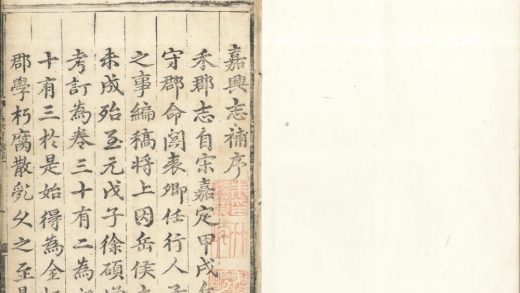 嘉興志補序
禾郡志自宋嘉定甲戌
守郡命聞表卿任行人子
之事編稿將上因岳侯
未成殆至元戊子徐碩
考訂為卷三十有二為
十有三於是始得為全
郡學朽腐散亂久之至